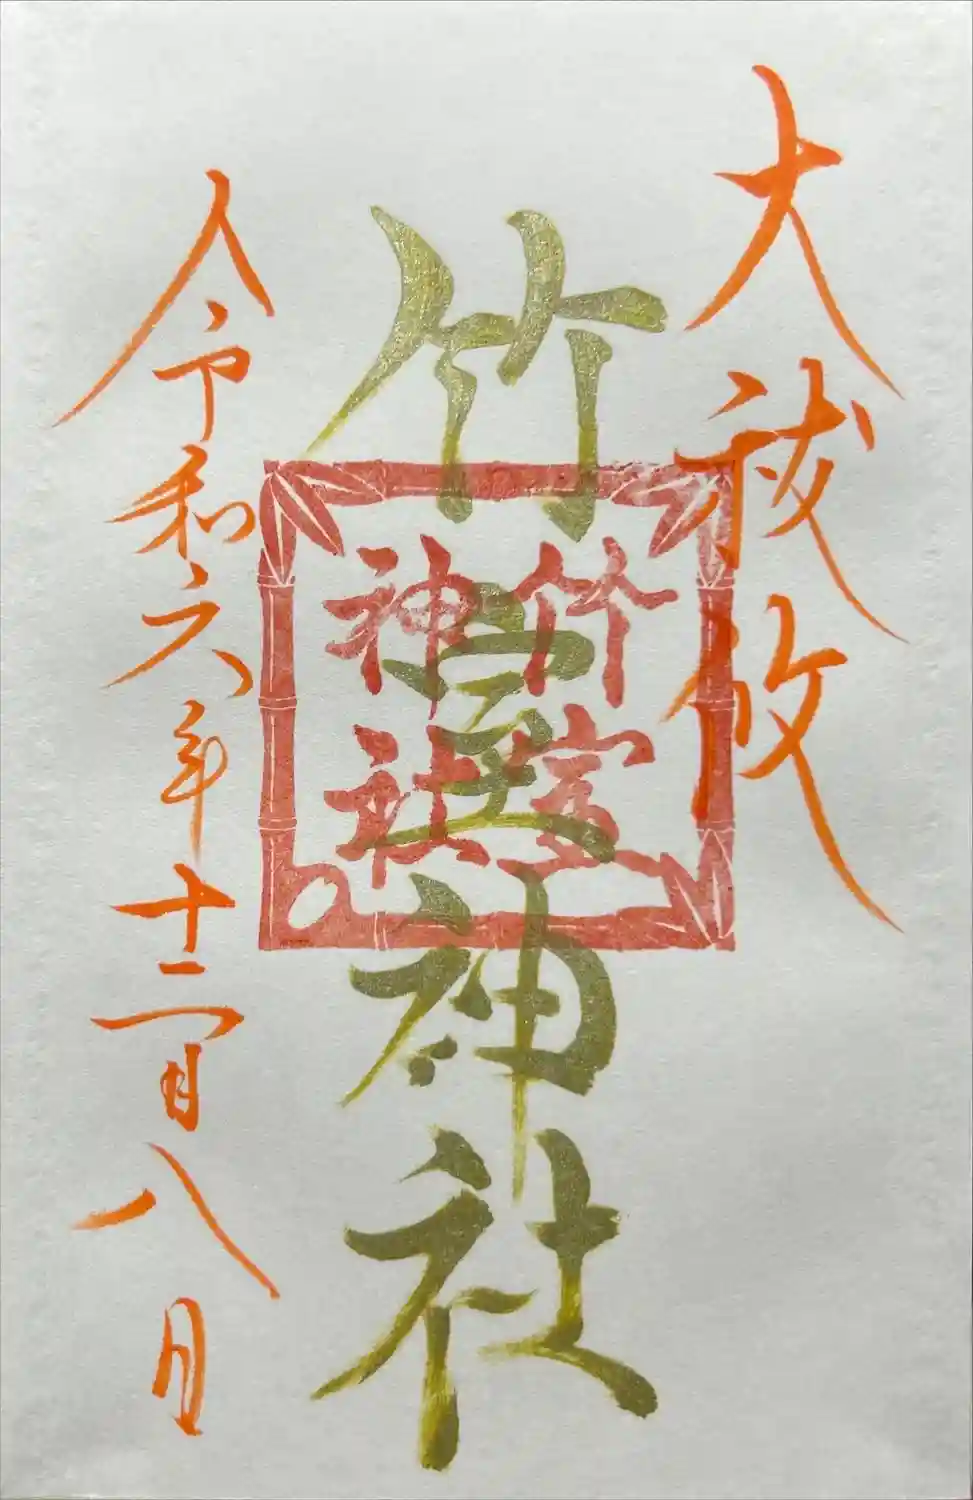 大祓
竹室神社
竹室
神社
令和六年十二月八日